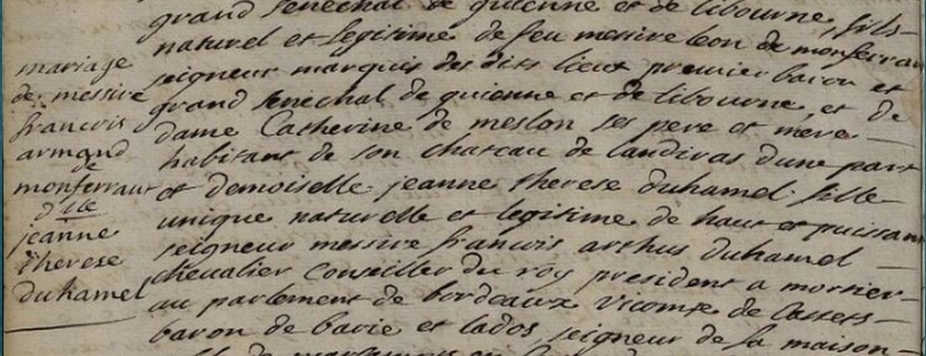 grand senechal de guienne et de libourne, fils
naturel et legitime de feu messire leon de monferran
seigneur marquis des dits lieux premier baron et
grand senechal de guienne et de libourne, et de
dame Catherine de meslon ses pere et mere
habitant de son chateau de landiras dune part
et demoiselle jeanne therese duhamel fille
unique naturelle et legitime de haut et puissant
seigneur messire francois arthus duhamel
chevalier Conseiller du roy president a mortier
au parlement de bordeaux vicomte de Castets
baron de barie et lados, seigneur de la maison
mariage
de messire
francois
armand
de
monferraut
d'lle
jeanne
therese
duhamel